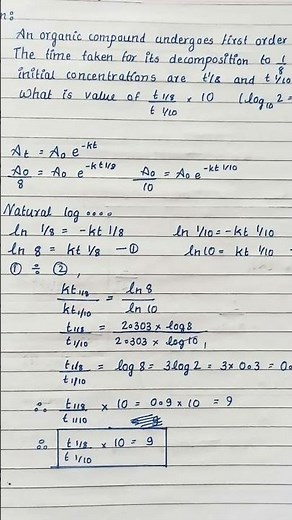 n:
An organic compound undergoes first order
The time taken for its decomposition to 1/8
initial concentrations are t1/8 and t 1/10
What is value of t 1/8 / t 1/10 × 10 (log10 2 =
At = A0 e^-kt
A0/8 = A0 e^-k t 1/8 A0/10 = A0 e^-kt 1/10
Natural log ....
ln 1/8 = -kt 1/8 ln 1/10 = -kt 1/10
ln 8 = kt 1/8 — ① ln 10 = kt 1/10
① ÷ ②,
kt1/8 / kt1/10 = ln 8 / ln 10
t1/8 / t1/10 = 2.303 × log 8 / 2.303 × log 10,
t1/8 / t1/10 = log 8 = 3 log 2 = 3 x 0.3 = 0.
∴ t1/8 / t1/10 × 10 = 0.9 × 10 = 9
∴ t 1/8 / t 1/10 × 10 = 9